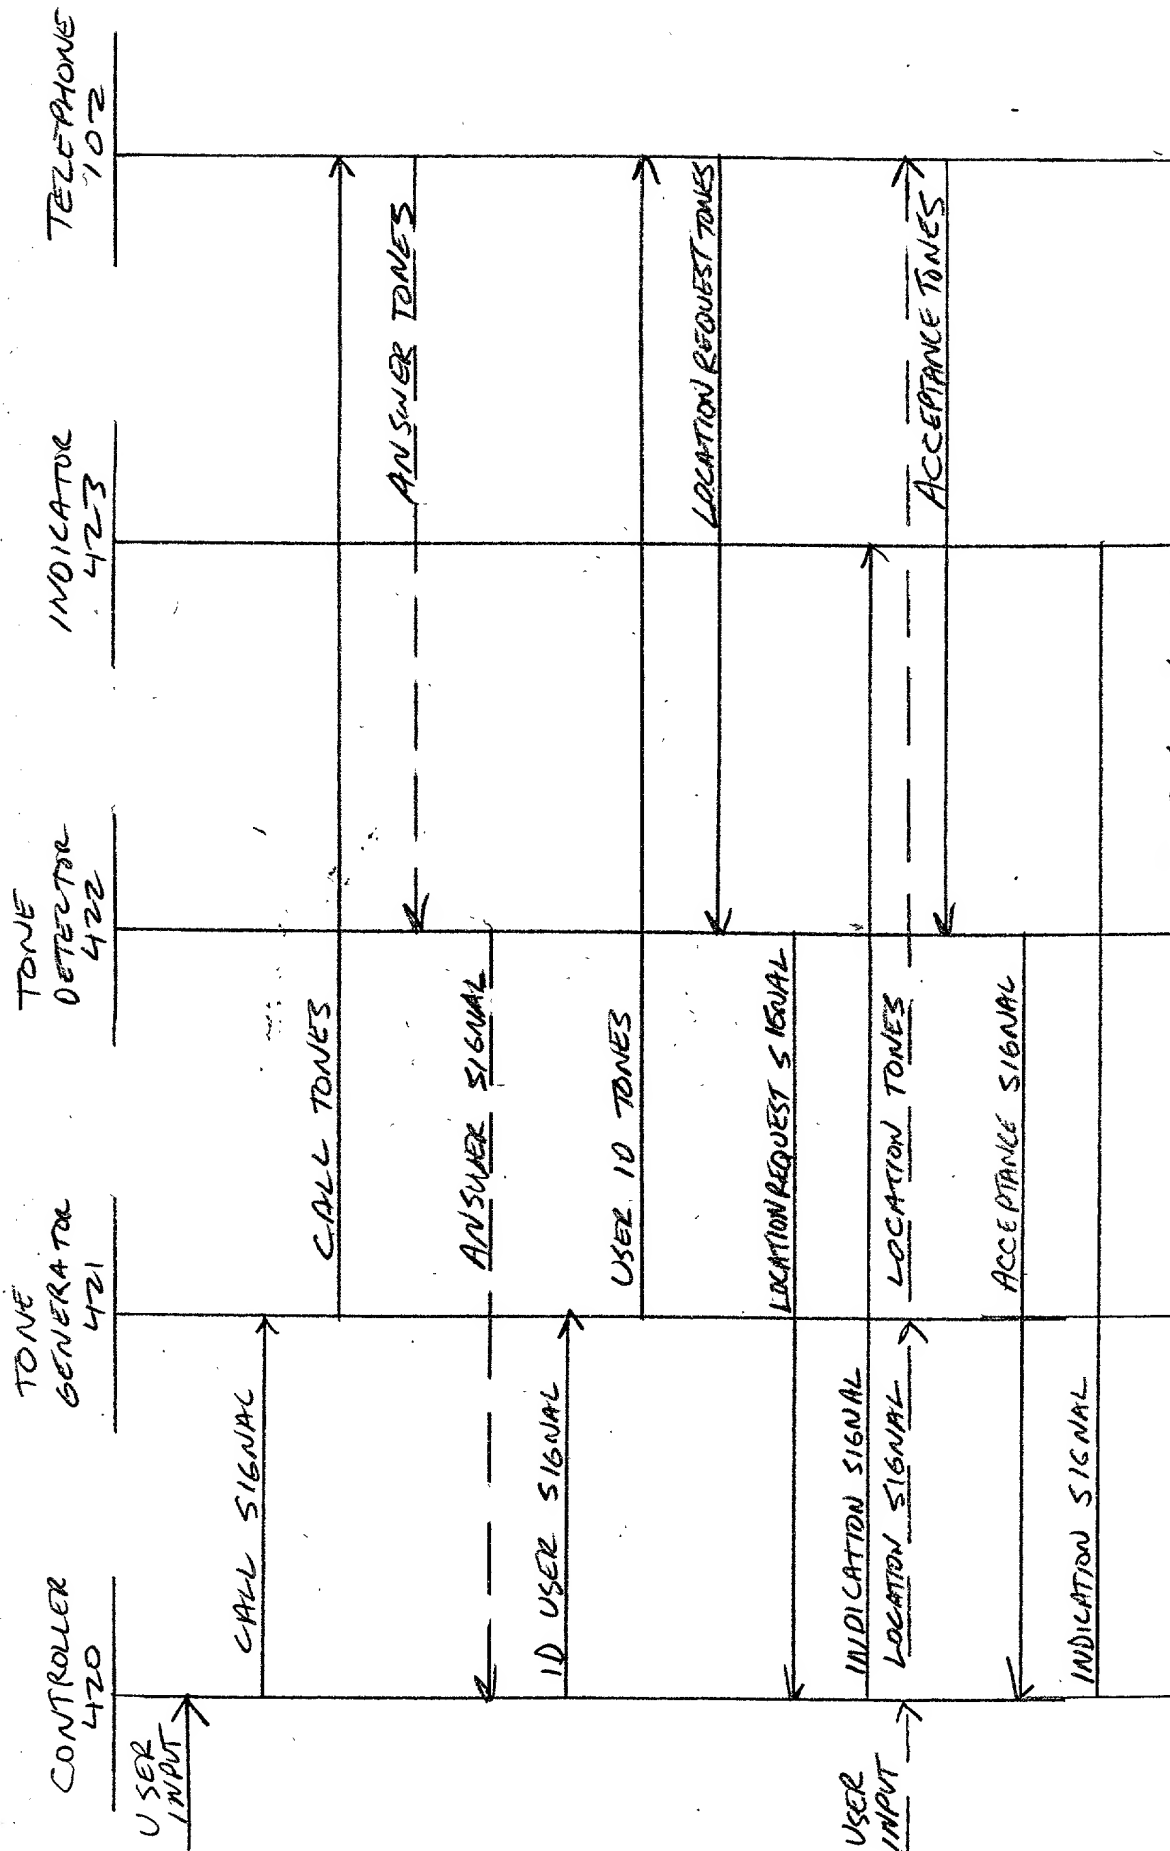 CONTROLLER
420
TONE
GENERATOR
421
TONE
DETECTOR
422
INDICATOR
423
TELEPHONE
102
USER
INPUT
CALL SIGNAL
CALL TONES
ANSWER TONES
ANSWER SIGNAL
ID USER SIGNAL
USER ID TONES
LOCATION REQUEST TONES
LOCATION REQUEST SIGNAL
INDICATION SIGNAL
USER
INPUT
LOCATION SIGNAL
LOCATION TONES
ACCEPTANCE TONES
ACCEPTANCE SIGNAL
INDICATION SIGNAL